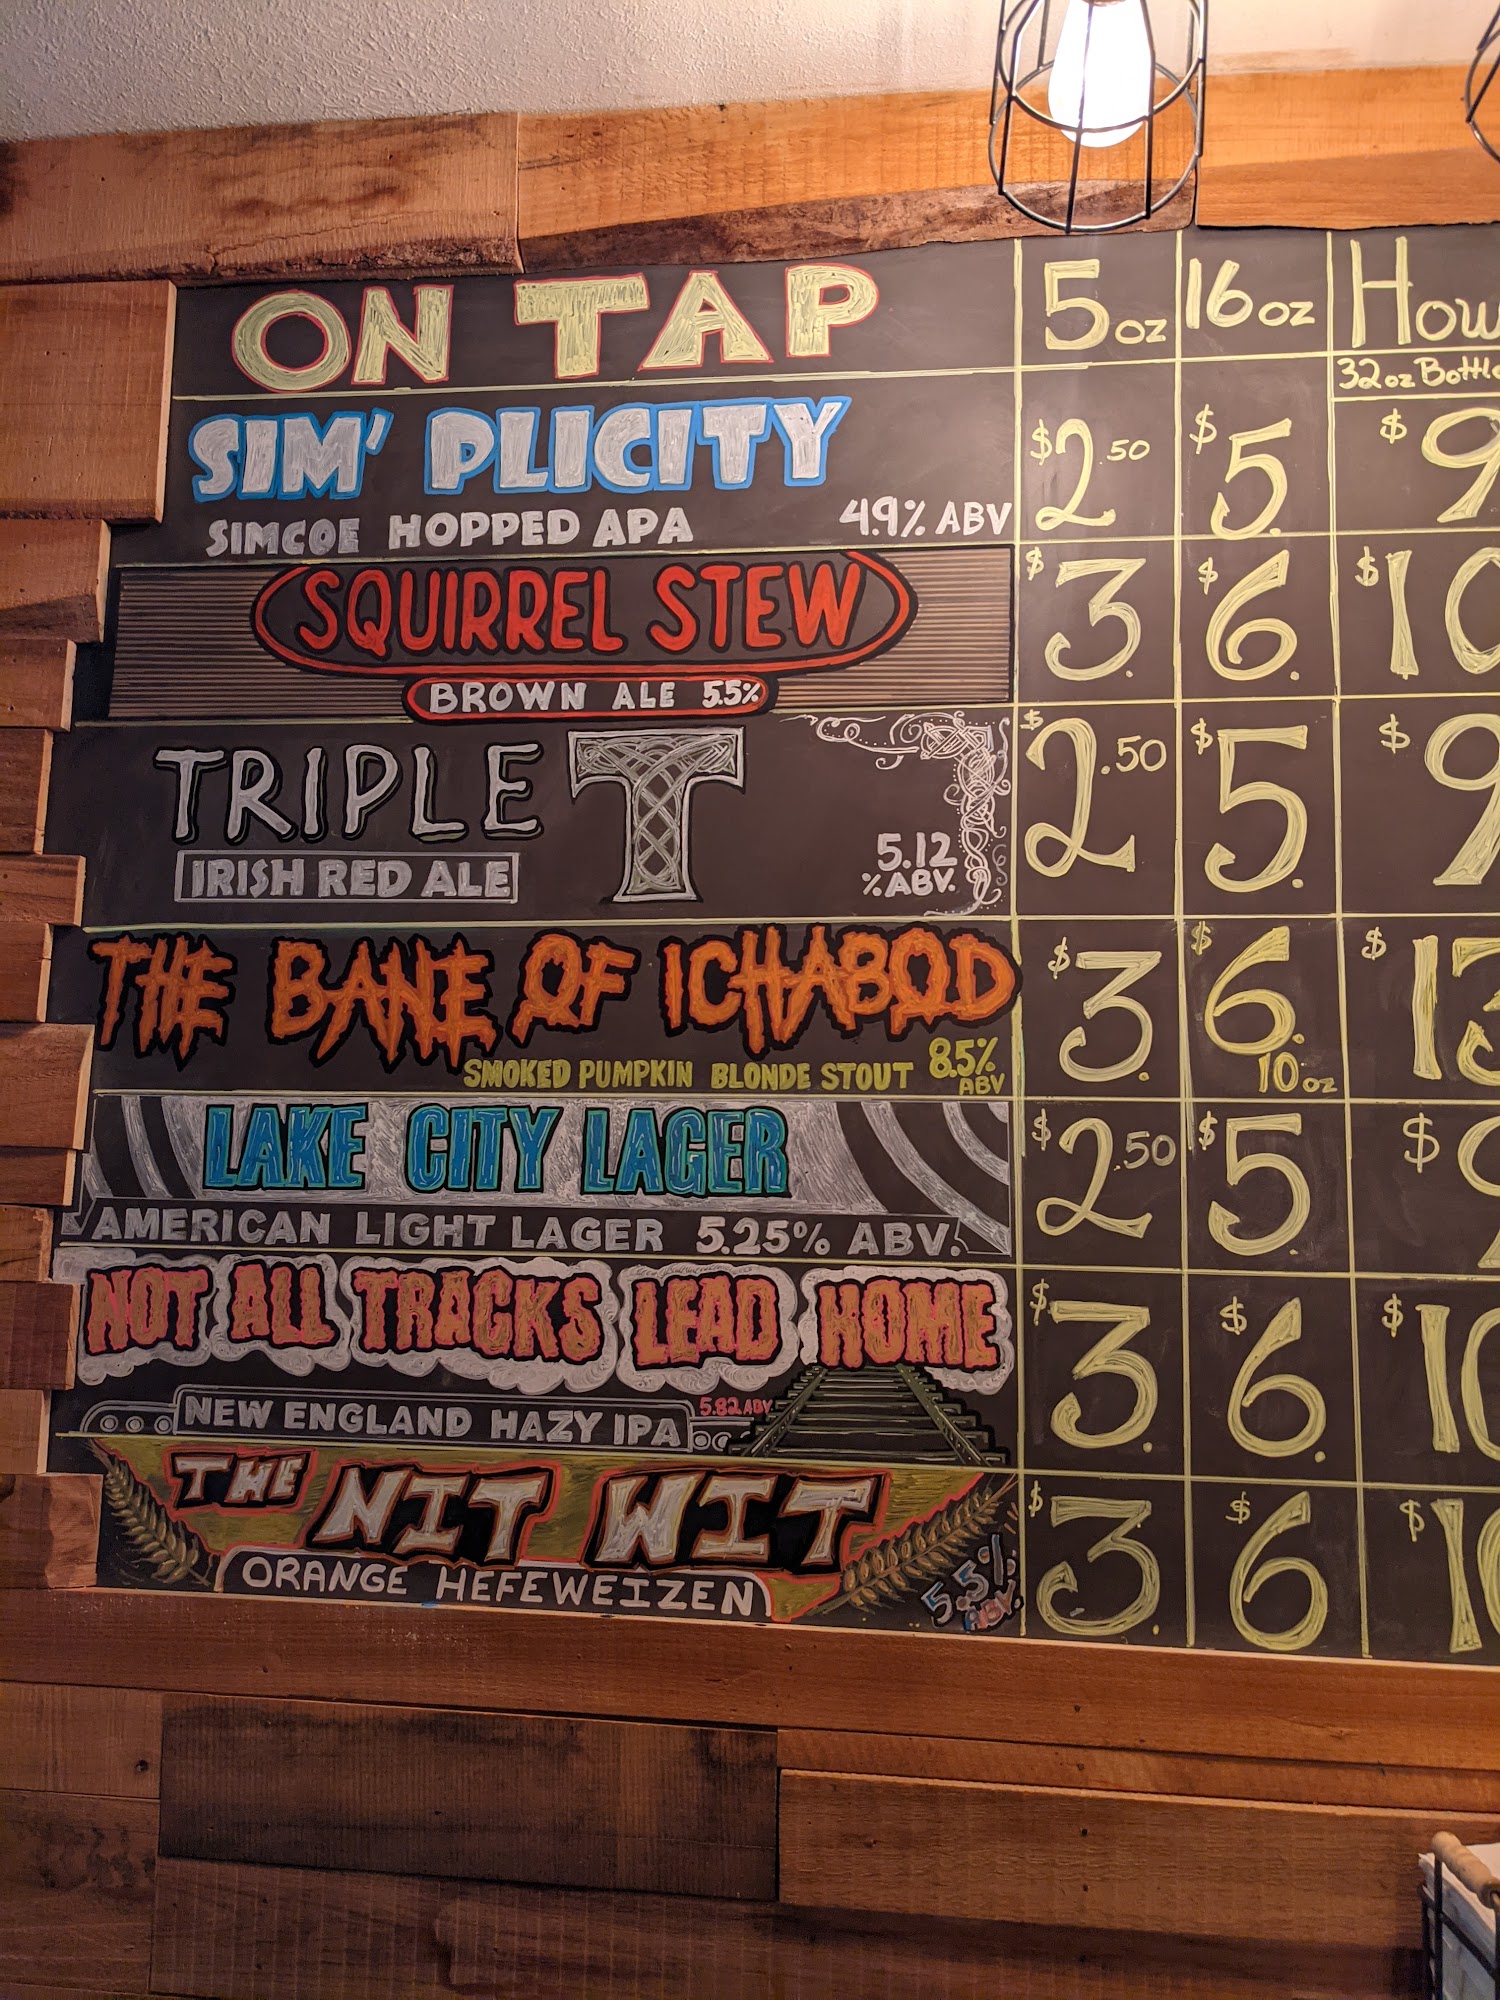 ON TAP 5 oz 16 oz
32 oz
SIM' PLICITY $2.50 $5. $9
SIMCOE HOPPED APA 4.9% ABV
SQUIRREL STEW $3. $6. $10
BROWN ALE 5.5%
TRIPLE T $2.50 $5. $9
IRISH RED ALE 5.12
% ABV.
THE BANE OF ICHABOD $3. $6. $13
SMOKED PUMPKIN BLONDE STOUT 8.5% 10 oz
ABV
LAKE CITY LAGER $2.50 $5. $9
AMERICAN LIGHT LAGER 5.25% ABV.
NOT ALL TRACKS LEAD HOME $3. $6. $10
NEW ENGLAND HAZY IPA 5.82 ABV
THE NIT WIT $3. $6 $10
ORANGE HEFEWEIZEN 5.5%
ABV.